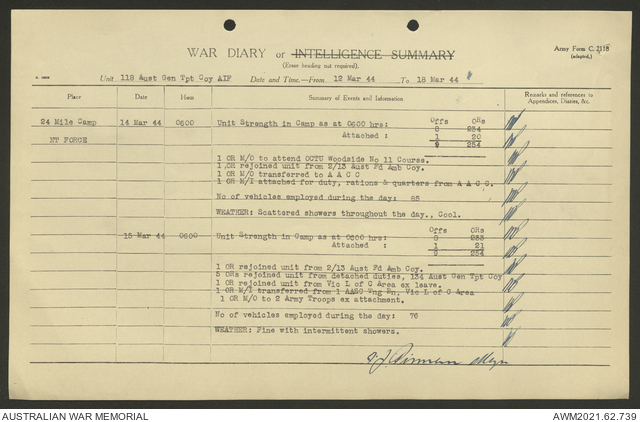 Army Form C.2118
(adapted.)
WAR DIARY or INTELLIGENCE SUMMARY
(Erase heading not required).
Unit 118 Aust Gen Tpt Coy AIF Date and Time.—From 12 Mar 44 To 18 Mar 44
Place Date Hour Summary of Events and Information Remarks and references to Appendices, Diaries, &c.
24 Mile Camp 14 Mar 44 0600 Unit Strength in Camp as at 0600 hrs: Offs ORs
8 234
NT FORCE Attached: 1 20
9 254
1 OR M/C to attend OCTU Woodside No 11 Course.
1 OR rejoined unit from 2/13 Aust Fd Amb Coy.
1 OR M/C transferred to A A C C
1 OR M/I attached for duty, rations & quarters from A A C C.
No of vehicles employed during the day: 85
WEATHER: Scattered showers throughout the day., Cool.
15 Mar 44 0600 Unit Strength in Camp as at 0600 hrs: Offs ORs
8 233
Attached : 1 21
9 254
1 OR rejoined unit from 2/13 Aust Fd Amb Coy.
5 ORs rejoined unit from detached duties, 134 Aust Gen Tpt Coy
1 OR rejoined unit from Vic L of C Area ex leave.
1 OR M/I transferred from 1 AASC Tng Bn, Vic L of C Area
1 OR M/C to 2 Army Troops ex attachment.
No of vehicles employed during the day: 76
WEATHER: Fine with intermittent showers.
AUSTRALIAN WAR MEMORIAL AWM2021.62.739